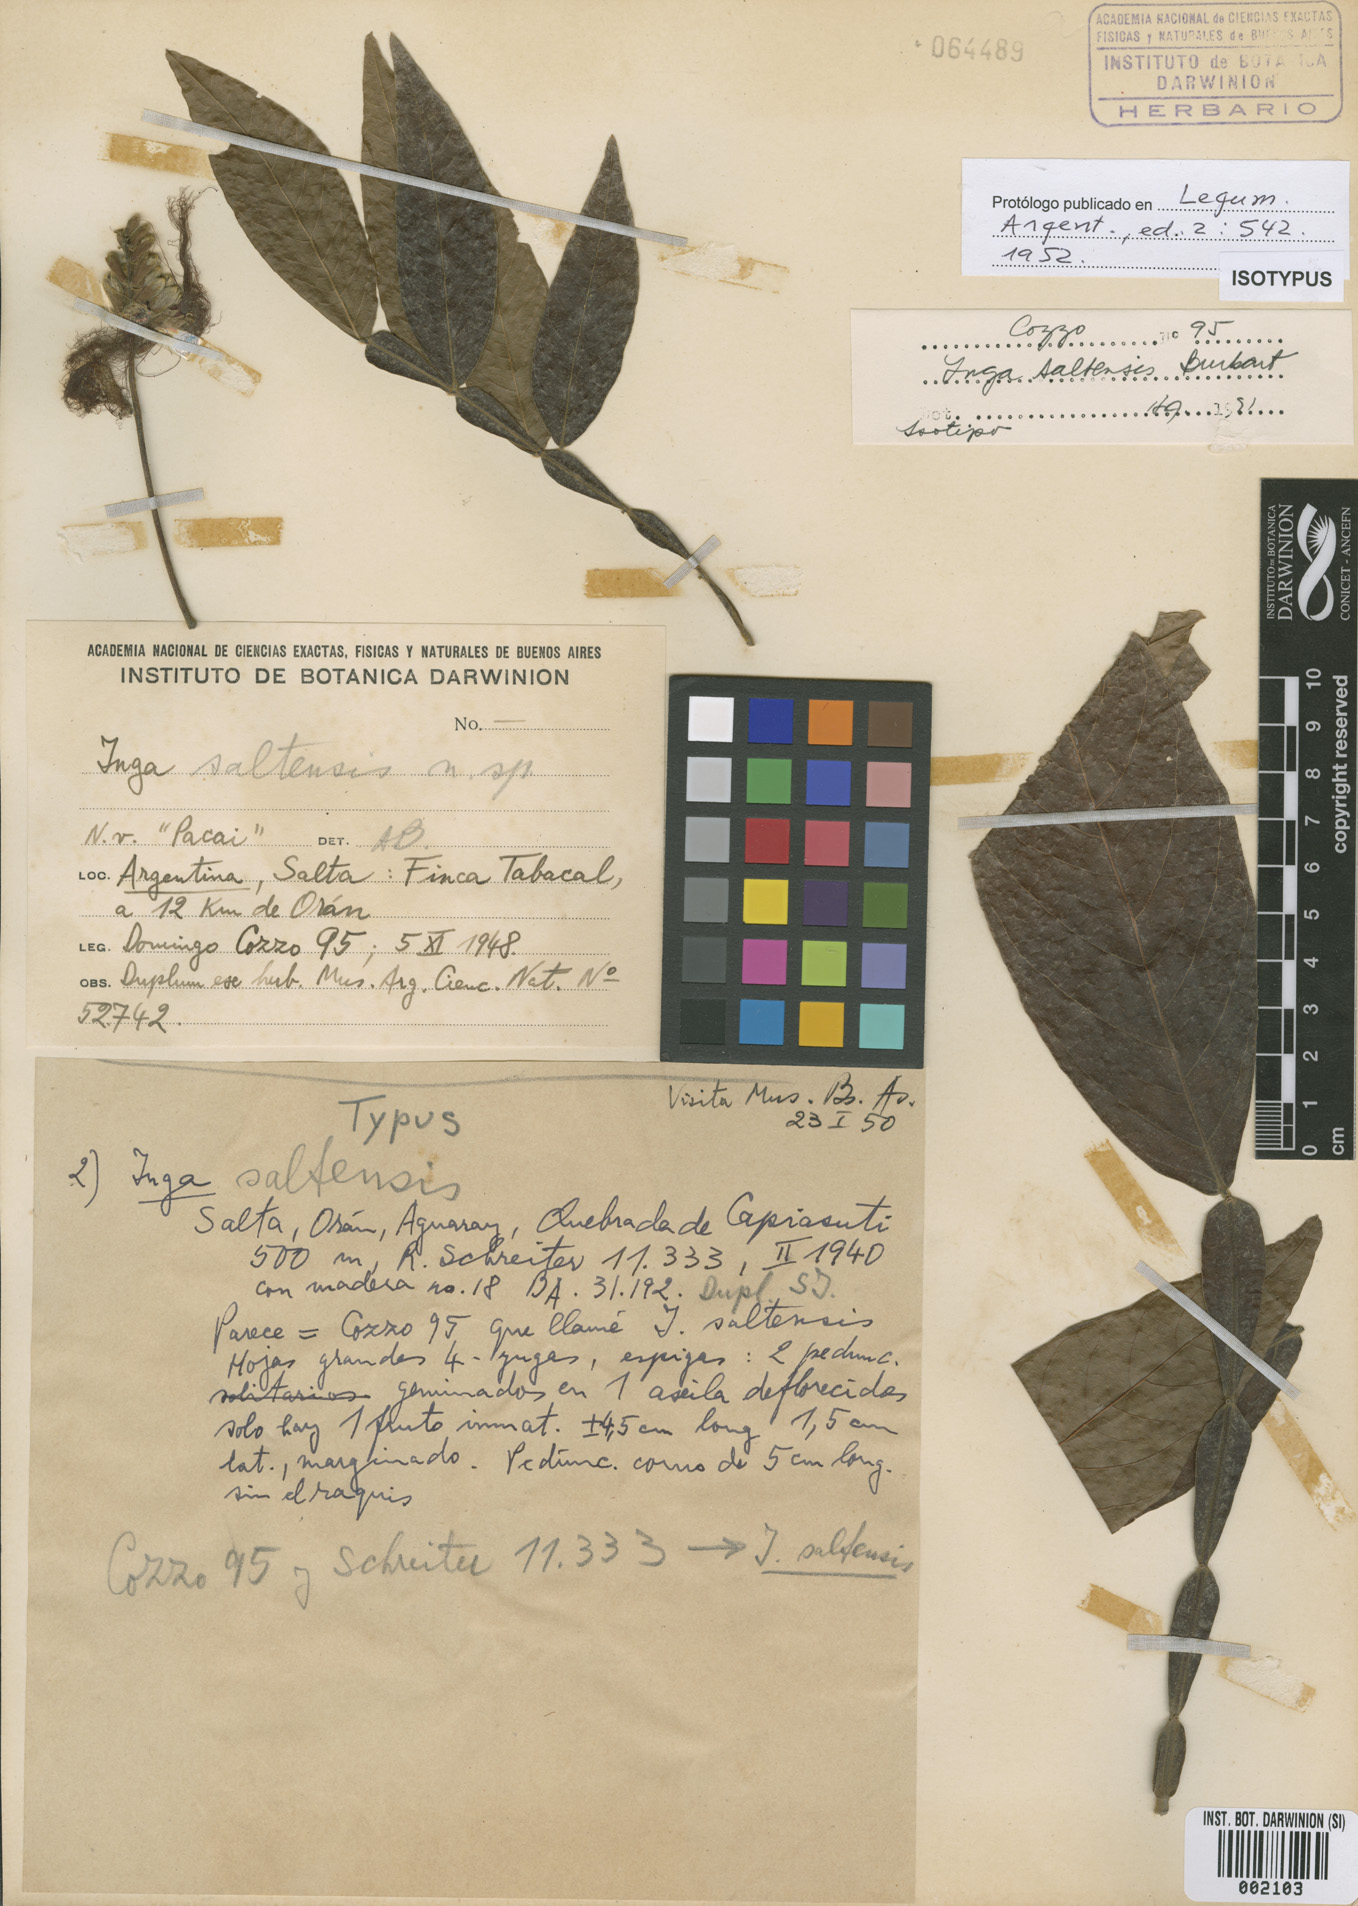 064489
ACADEMIA NACIONAL de CIENCIAS EXACTAS
FISICAS y NATURALES de BUENOS AIRES
INSTITUTO de BOTANICA
DARWINION
HERBARIO
Protólogo publicado en Legum.
Argent., ed. 2: 542.
1952.
ISOTYPUS
Cozzo nº 95
Inga saltensis Burkart
1981
Isotipo
INSTITUTO DE BOTANICA
DARWINION
CONICET - ANCEFN
ACADEMIA NACIONAL DE CIENCIAS EXACTAS, FISICAS Y NATURALES DE BUENOS AIRES
INSTITUTO DE BOTANICA DARWINION
No. —
Inga saltensis n. sp.
N.v. "Pacai" DET. AB.
LOC. Argentina, Salta: Finca Tabacal,
a 12 Km de Orán
LEG. Domingo Cozzo 95; 5 XI 1948.
OBS. Duplum ex herb. Mus. Arg. Cienc. Nat. Nº
52.742.
10
9
8
7
6
5
4
3
2
1
0
cm
copyright reserved
Visita Mus. Bs. As.
23 I 50
Typus
2) Inga saltensis
Salta, Orán, Aguaray, Quebrada de Capiasuti
500 m, R. Schreiter 11.333, II 1940
con madera no. 18 BA. 31.192. Dupl. SI.
Parece = Cozzo 95 que llamé I. saltensis
Hojas grandes 4-yugas, espigas: 2 pedunc.
solitarios geminados en 1 axila deflorecidas
solo hay 1 fruto inmat. ±4,5 cm long 1,5 cm
lat., marginado. Pedúnc. como de 5 cm long.
sin el raquis
Cozzo 95 y Schreiter 11.333 → I. saltensis
INST. BOT. DARWINION (SI)
002103